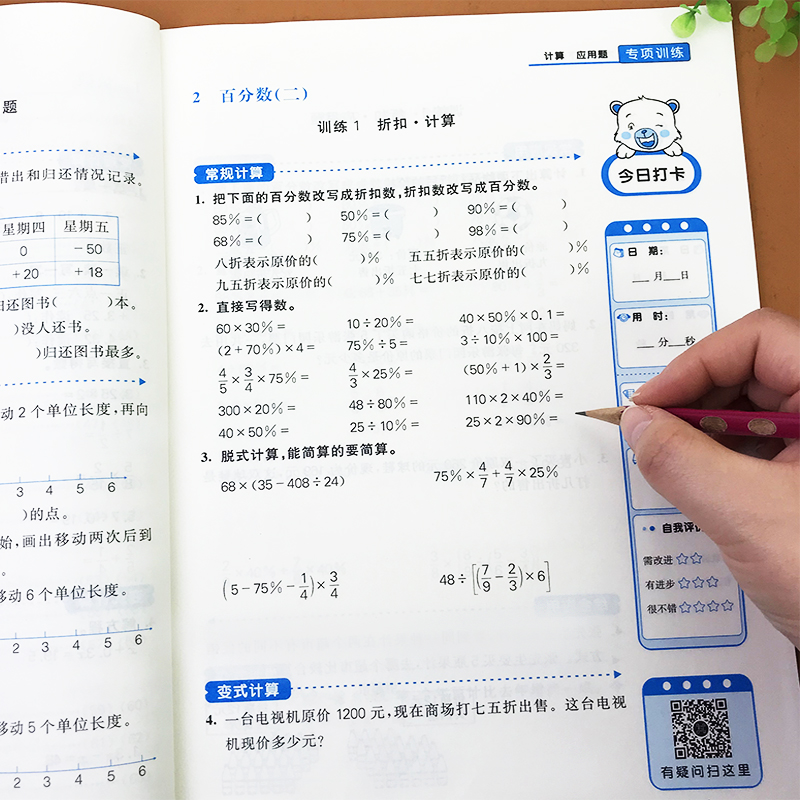 题
借出和归还情况记录。
星期四 星期五
0 －50
＋20 ＋18
归还图书( )本。
)没人还书。
)归还图书最多。
动2个单位长度,再向
3 4 5 6
)的点。
始,画出移动两次后到
。
移动6个单位长度。
2 3 4 5 6
移动5个单位长度。
2 3 4 5 6
计算 应用题 专项训练
2 百分数(二)
训练1 折扣·计算
常规计算
1. 把下面的百分数改写成折扣数,折扣数改写成百分数。
85%=( ) 50%=( ) 90%=( )
68%=( ) 75%=( ) 98%=( )
八折表示原价的( )% 五五折表示原价的( )%
九五折表示原价的( )% 七七折表示原价的( )%
2. 直接写得数。
60×30%= 10÷20%= 40×50%×0.1=
(2+70%)×4= 75%÷5= 3÷10%×100=
4/5×3/4×75%= 4/3×25%= (50%+1)×2/3=
300×20%= 48÷80%= 110×2×40%=
40×50%= 25÷10%= 25×2×90%=
3. 脱式计算,能简算的要简算。
68×(35-408÷24) 75%×4/7+4/7×25%
(5-75%-1/4)×3/4 48÷[(7/9-2/3)×6]
变式计算
4. 一台电视机原价1200元,现在商场打七五折出售。这台电视
机现价多少元?
今日打卡
日 期:
月 日
用 时:
分 秒
自我评
需改进☆☆
有进步☆☆☆
很不错☆☆☆☆
有疑问扫这里